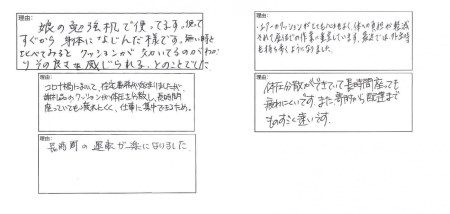 理由:
娘の勉強机で使ってます。使って
すぐから身体になじんだ様です。無い時と
比べてみると クッションが
その良さを感じられる、とのことでした
理由:
コロナ禍において、在宅勤務が始まりましたが、
クッションが体圧を分散し、長時間
座っていても疲れにくく、仕事に集中できるため。
理由:
長時間の運転が楽になりました。
理由:
クッションがとても心地よく、体への負担が軽減
されて座ってる作業に重宝しています。最近では、外出時
も持ち歩くようになりました。
理由:
体圧分散ができていて長時間座っても
疲れにくいです。また、寄付から配送まで
ものすごく速いです。